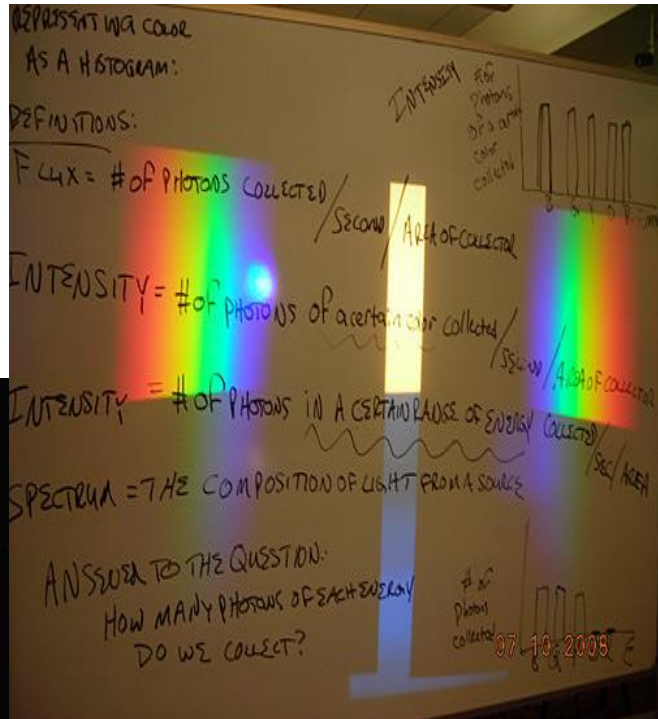 REPRESENTING COLOR
AS A HISTOGRAM:
DEFINITIONS:
FLUX = # OF PHOTONS COLLECTED / SECOND / AREA OF COLLECTOR
INTENSITY = # OF PHOTONS OF a certain color collected / SECOND / AREA OF COLLECTOR
INTENSITY = # OF PHOTONS IN A CERTAIN RANGE OF ENERGY COLLECTED / SEC / AREA
SPECTRUM = THE COMPOSITION OF LIGHT FROM A SOURCE
ANSWER TO THE QUESTION:
HOW MANY PHOTONS OF EACH ENERGY
DO WE COLLECT?
INTENSITY
# of
Photons
color
collected
# of
Photons
collected
E
07 10 2008